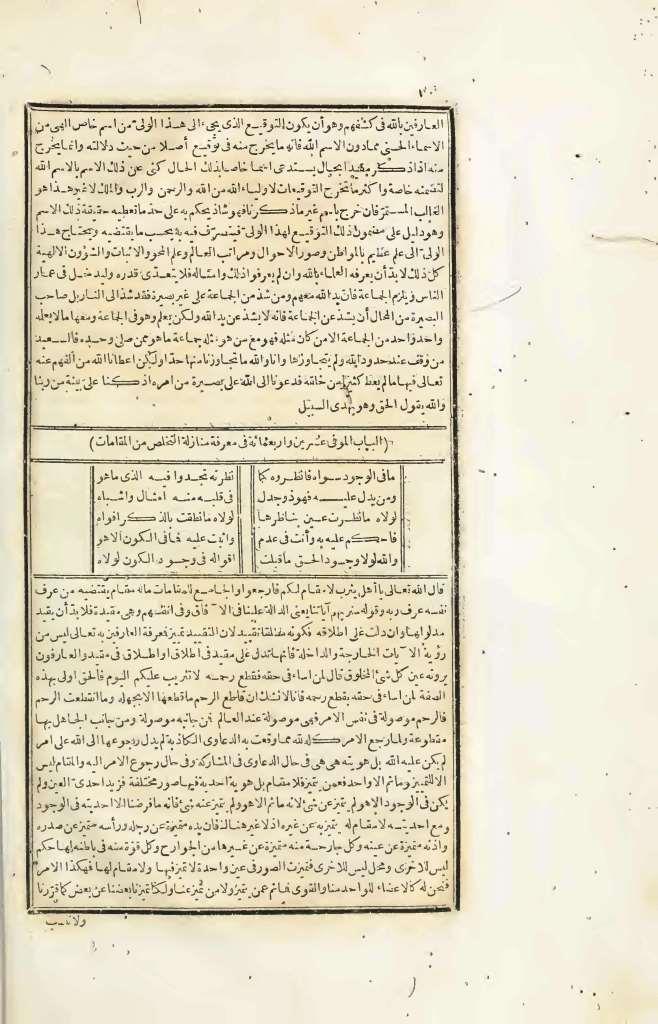 العارفين بالله في كشفهم وهو أن يكون التوقيع الذي يجيء الى هذا الولي من اسم خاص الهي من
الاسماء الحسنى مما دون الاسم الله فانه ما يخرج منه في توقيع أصلا من حيث دلالته وانما يخرج
منه اذا ذكر مقيدا بحال يستدعي اسما خاصا بذلك الحال كنى عن ذلك الاسم بالاسم الله
لتضمنه خاصة وأكثر ما تخرج التوقيعات لاولياء الله من الله والرحمن والرب والملك لا غير هذا هو
الغالب المستمر فان خرج باسم غير ما ذكرنا فهو شاذ يحكم به على حد ما تعطيه حقيقة ذلك الاسم
وهو دليل على مضمون ذلك التوقيع لهذا الولي فيتصرف فيه به بحسب ما يقتضيه ويحتاج هذا
الولي الى علم عظيم بالمواطن وصور الاحوال ومراتب العالم وعلم المحو والاثبات والشؤون الالهية
كل ذلك لا بد أن يعرفه العلماء بالله وان لم يعرفوا ذلك وامثاله فلا يتعدى قدره وليدخل في غمار
الناس ويلزم الجماعة فان يد الله معهم ومن شذ من الجماعة على غير بصيرة فقد شذ الى النار بل صاحب
البصيرة من المحال أن يشذ عن الجماعة فانه لا يشذ عن يد الله ولكن يعلم وهو في الجماعة ومعها ما لا يعلمه
واحد واحد من الجماعة الا من كان مثله فهو مع من هو مثله جماعة ما هو ممن صلى وحده فالسعيد
من وقف عند حدود الله ولم يتجاوزها وانا والله ما تجاوزنا منها حدا ولكن اعطانا الله من الفهم عنه
تعالى فيها ما لم يعط كثيرا من خلقه فدعونا الى الله على بصيرة من امره اذ كنا على بينة من ربنا
والله يقول الحق وهو يهدي السبيل
(الباب الموفي عشرين واربعمائة في معرفة منازلة التخلص من المقامات)
ما في الوجود سواه فانظروه كما نظرته تجدوا فيه الذي ما هو
ومن يدل عليه فهو ذو جدل في قلبه منه أمثال واشباه
لولاه ما نظرت عين بناظرها لولاه ما نطقت بالذكر افواه
فاحكم عليه به وأنت في عدم واثبت عليه فما في الكون الا هو
والله لولا وجود الحق ما قبلت اقواله في وجود الكون لولاه
قال الله تعالى يا أهل يثرب لا مقام لكم فارجعوا والجامع للمقامات ماله مقام يقتضيه من عرف
نفسه عرف ربه وقوله سنريهم آياتنا يعني الدالة علينا في الآفاق وفي انفسهم وهي مقيدة فلا بد أن يقيد
مدلولها وان دلت على اطلاقه فكونه مطلقا تقييد لان التقييد تمييز فمعرفة العارفين به تعالى ليس من
رؤية الآيات الخارجة والداخلة فانها تدل على مقيد في اطلاق أو اطلاق في مقيد والعارفون
يرونه عين كل شئ المخلوق قال لمن اساء في حقه فقطع رحمه لا تثريب عليكم اليوم فالحق اولى بهذه
الصفة لمن اساء في حقه بقطع رحمه فانا لا نشك ان قاطع الرحم ما قطعها الا بجهله وما انقطعت الرحم
فالرحم موصولة في نفس الامر فهي موصولة عند العالم فمن جانبه موصولة ومن جانب الجاهل بها
مقطوعة ولما رجع الامر كله لله مما وقعت به الدعاوى الكاذبة لم يدل رجوعها الى الله على امر
لم يكن عليه الله بل هويته هي هي في حال الدعاوى في المشاركة وفي حال رجوع الامر اليه والمقام ليس
الا للتمييز وما ثم الا واحد فعمن يتميز فلا مقام بل هوية احدية فيها صور مختلفة فزيد احدي العين ولم
يكن في الوجود الا هو لم يتميز عن شئ لانه ما ثم الا هو ولم يتميز عنه شئ فانه ما فرضنا الا احديته في الوجود
ومع احديته لا مقام له يتميز به عن غيره اذ لا غير هنالك فان يده متميزة عن رجله ورأسه متميز عن صدره
واذنه متميزة عن عينه وكل جارحة منه متميزة عن غيرها من الجوارح وكل قوة منه في باطنه لها حكم
ليس للاخرى ومحل ليس للاخرى فتميزت الصور في عين واحدة لا تميز فيها ولا مقام لها فهكذا الامر
فنحن له كالاعضاء للواحد منا والقوى فما ثم عمن يتميز ولا من تميز عنا ولكنا تميز نا بعضنا عن بعض كما قررنا